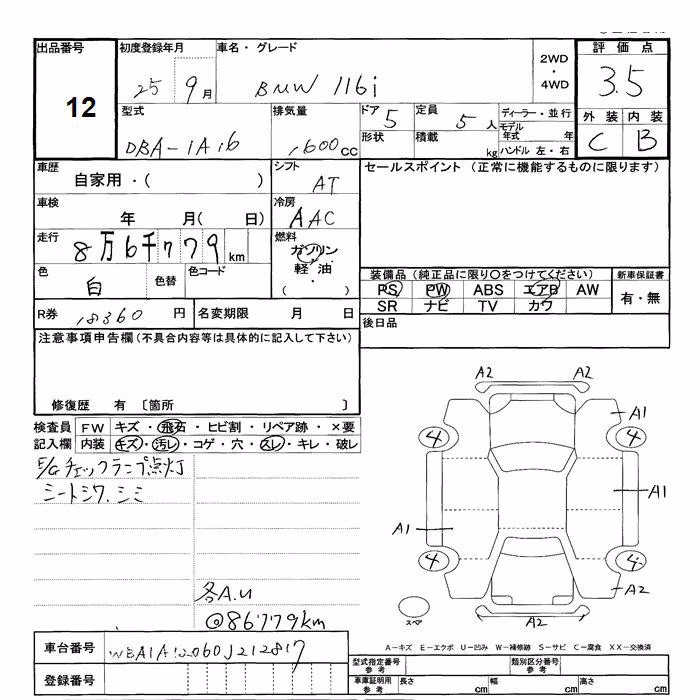 出品番号
12
初度登録年月
25 9月
車名・グレード
BMW 116i
2WD
・
4WD
評価点
3.5
外装 内装
C B
型式
DBA-1A16
排気量
1600cc
ドア 5
形状
定員 5人
積載 kg
ディーラー・並行
モデル年式 年
ハンドル 左・右
車歴
自家用・( )
シフト
AT
セールスポイント (正常に機能するものに限ります)
車検
年 月( 日)
冷房
AAC
走行
8万6千779km
燃料
ガソリン
軽油
・
( )
色
白
色替
色コード
装備品(純正品に限り○をつけてください)
PS PW ABS エアB AW
SR ナビ TV カワ
新車保証書
有・無
R券
18360円
名変期限 月 日
後日品
注意事項申告欄(不具合内容等は具体的に記入して下さい)
修復歴 有 〔箇所 〕
検査員
記入欄
FW キズ・飛石・ヒビ割・リペア跡・×要
内装 キズ・汚レ・コゲ・穴・スレ・キレ・破レ
E/Gチェックランプ点灯
シートシワ.シミ
各A.U
@86779km
A2
A2
A1
4
4
A1
A1
4
4
A2
A2
スペア
A-キズ E-エクボ U-凹み W-補修跡 S-サビ C-腐食 XX-交換済
車台番号
登録番号
型式指定番号
参考
類別区分番号
参考
車庫証明用
参考
長さ cm
幅 cm
高さ cm